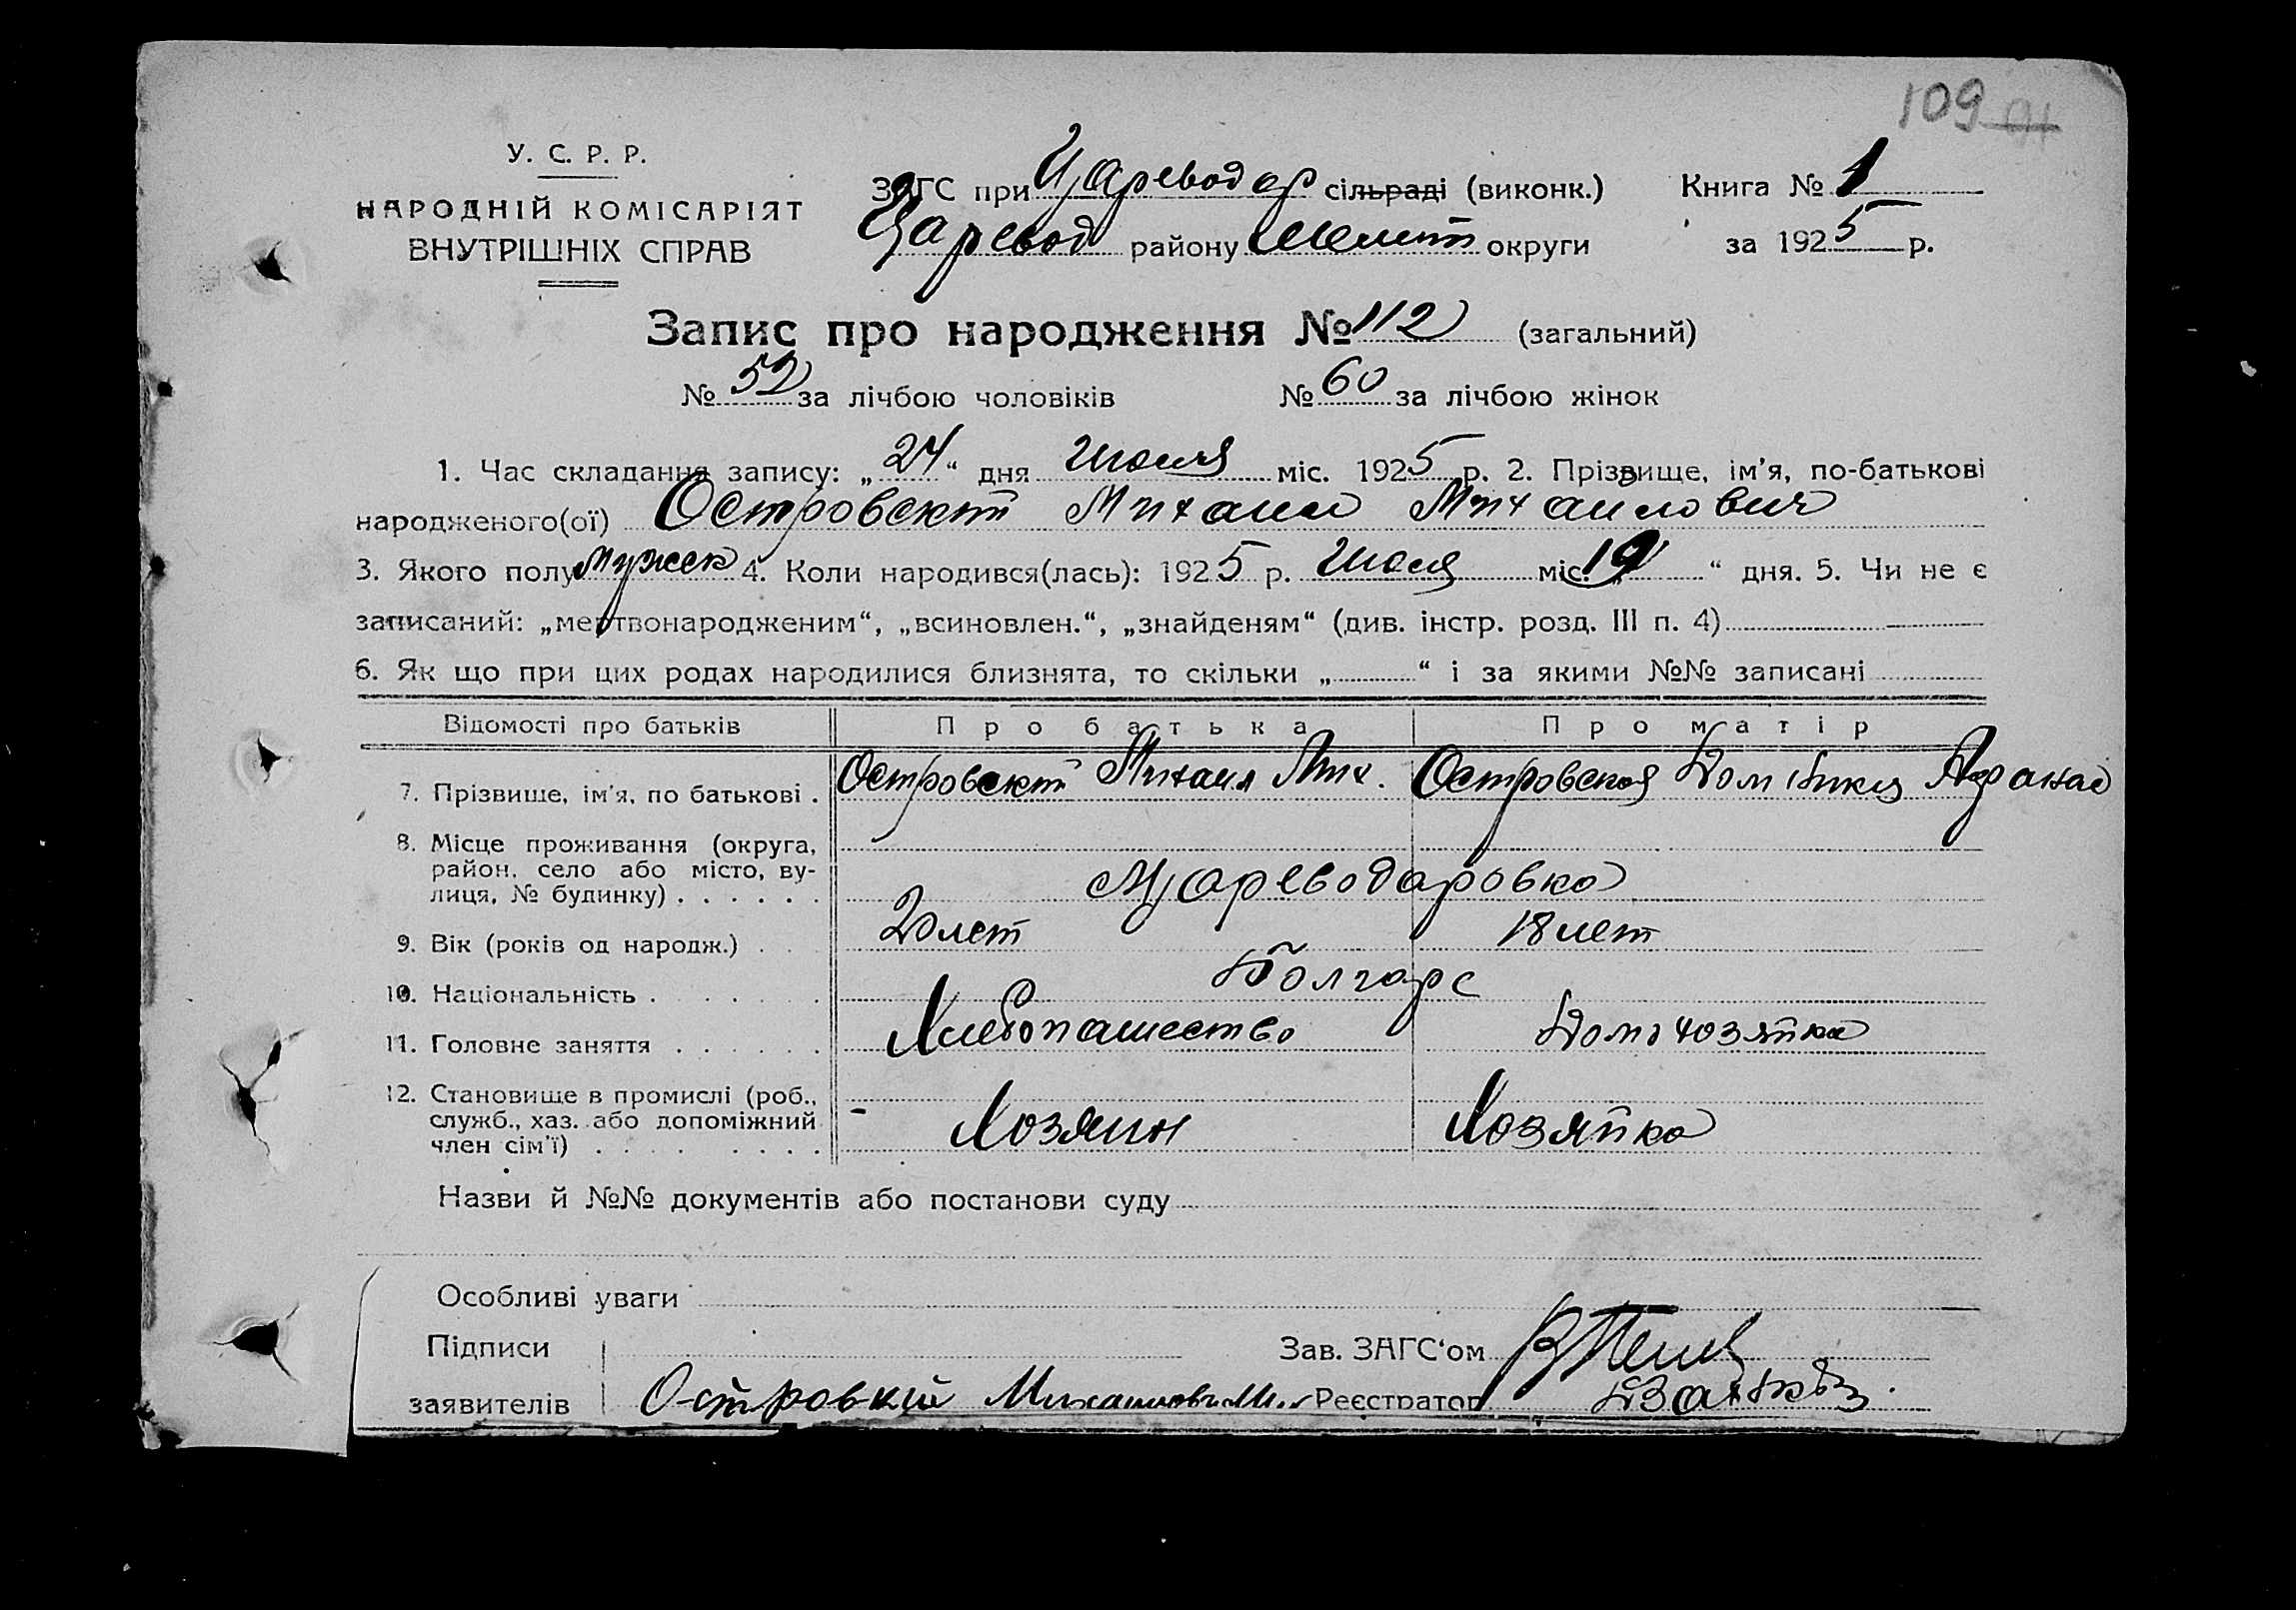 109
У. С. Р. Р.
НАРОДНІЙ КОМІСАРІЯТ
ВНУТРІШНІХ СПРАВ
ЗАГС при Цареводар сільраді (виконк.) Книга № 1
Царевод району Мелит округи за 1925 р.
Запис про народження № 112 (загальний)
№ 52 за лічбою чоловіків № 60 за лічбою жінок
1. Час складання запису: „24“ дня Июля міс. 1925 р. 2. Прізвище, ім'я, по-батькові
народженого(ої) Островский Михаил Михаилович
3. Якого полу мужск 4. Коли народився(лась): 1925 р. Июля міс. „19“ дня. 5. Чи не є
записаний: „мертвонародженим“, „всиновлен.“, „знайденям“ (див. інстр. розд. III п. 4)
6. Як що при цих родах народилися близнята, то скільки „ “ і за якими №№ записані
Відомості про батьків Про батька Про матір
7. Прізвище, ім'я, по батькові . Островский Михаил Мих. Островская Домникия Афанас
8. Місце проживання (округа,
район, село або місто, ву-
лиця, № будинку) . . . . . . Цареводаровка
9. Вік (років од народж.) . . . 20 лет 18 лет
10. Національність . . . . . . Болгаре
11. Головне заняття . . . . . . Хлебопашество Домохозяйка
12. Становище в промислі (роб.,
служб., хаз. або допоміжний
член сім'ї) . . . . . . . . Хозяин Хозяйка
Назви й №№ документів або постанови суду
Особливі уваги
Підписи Зав. ЗАГС'ом
заявителів Островкий Реєстратор